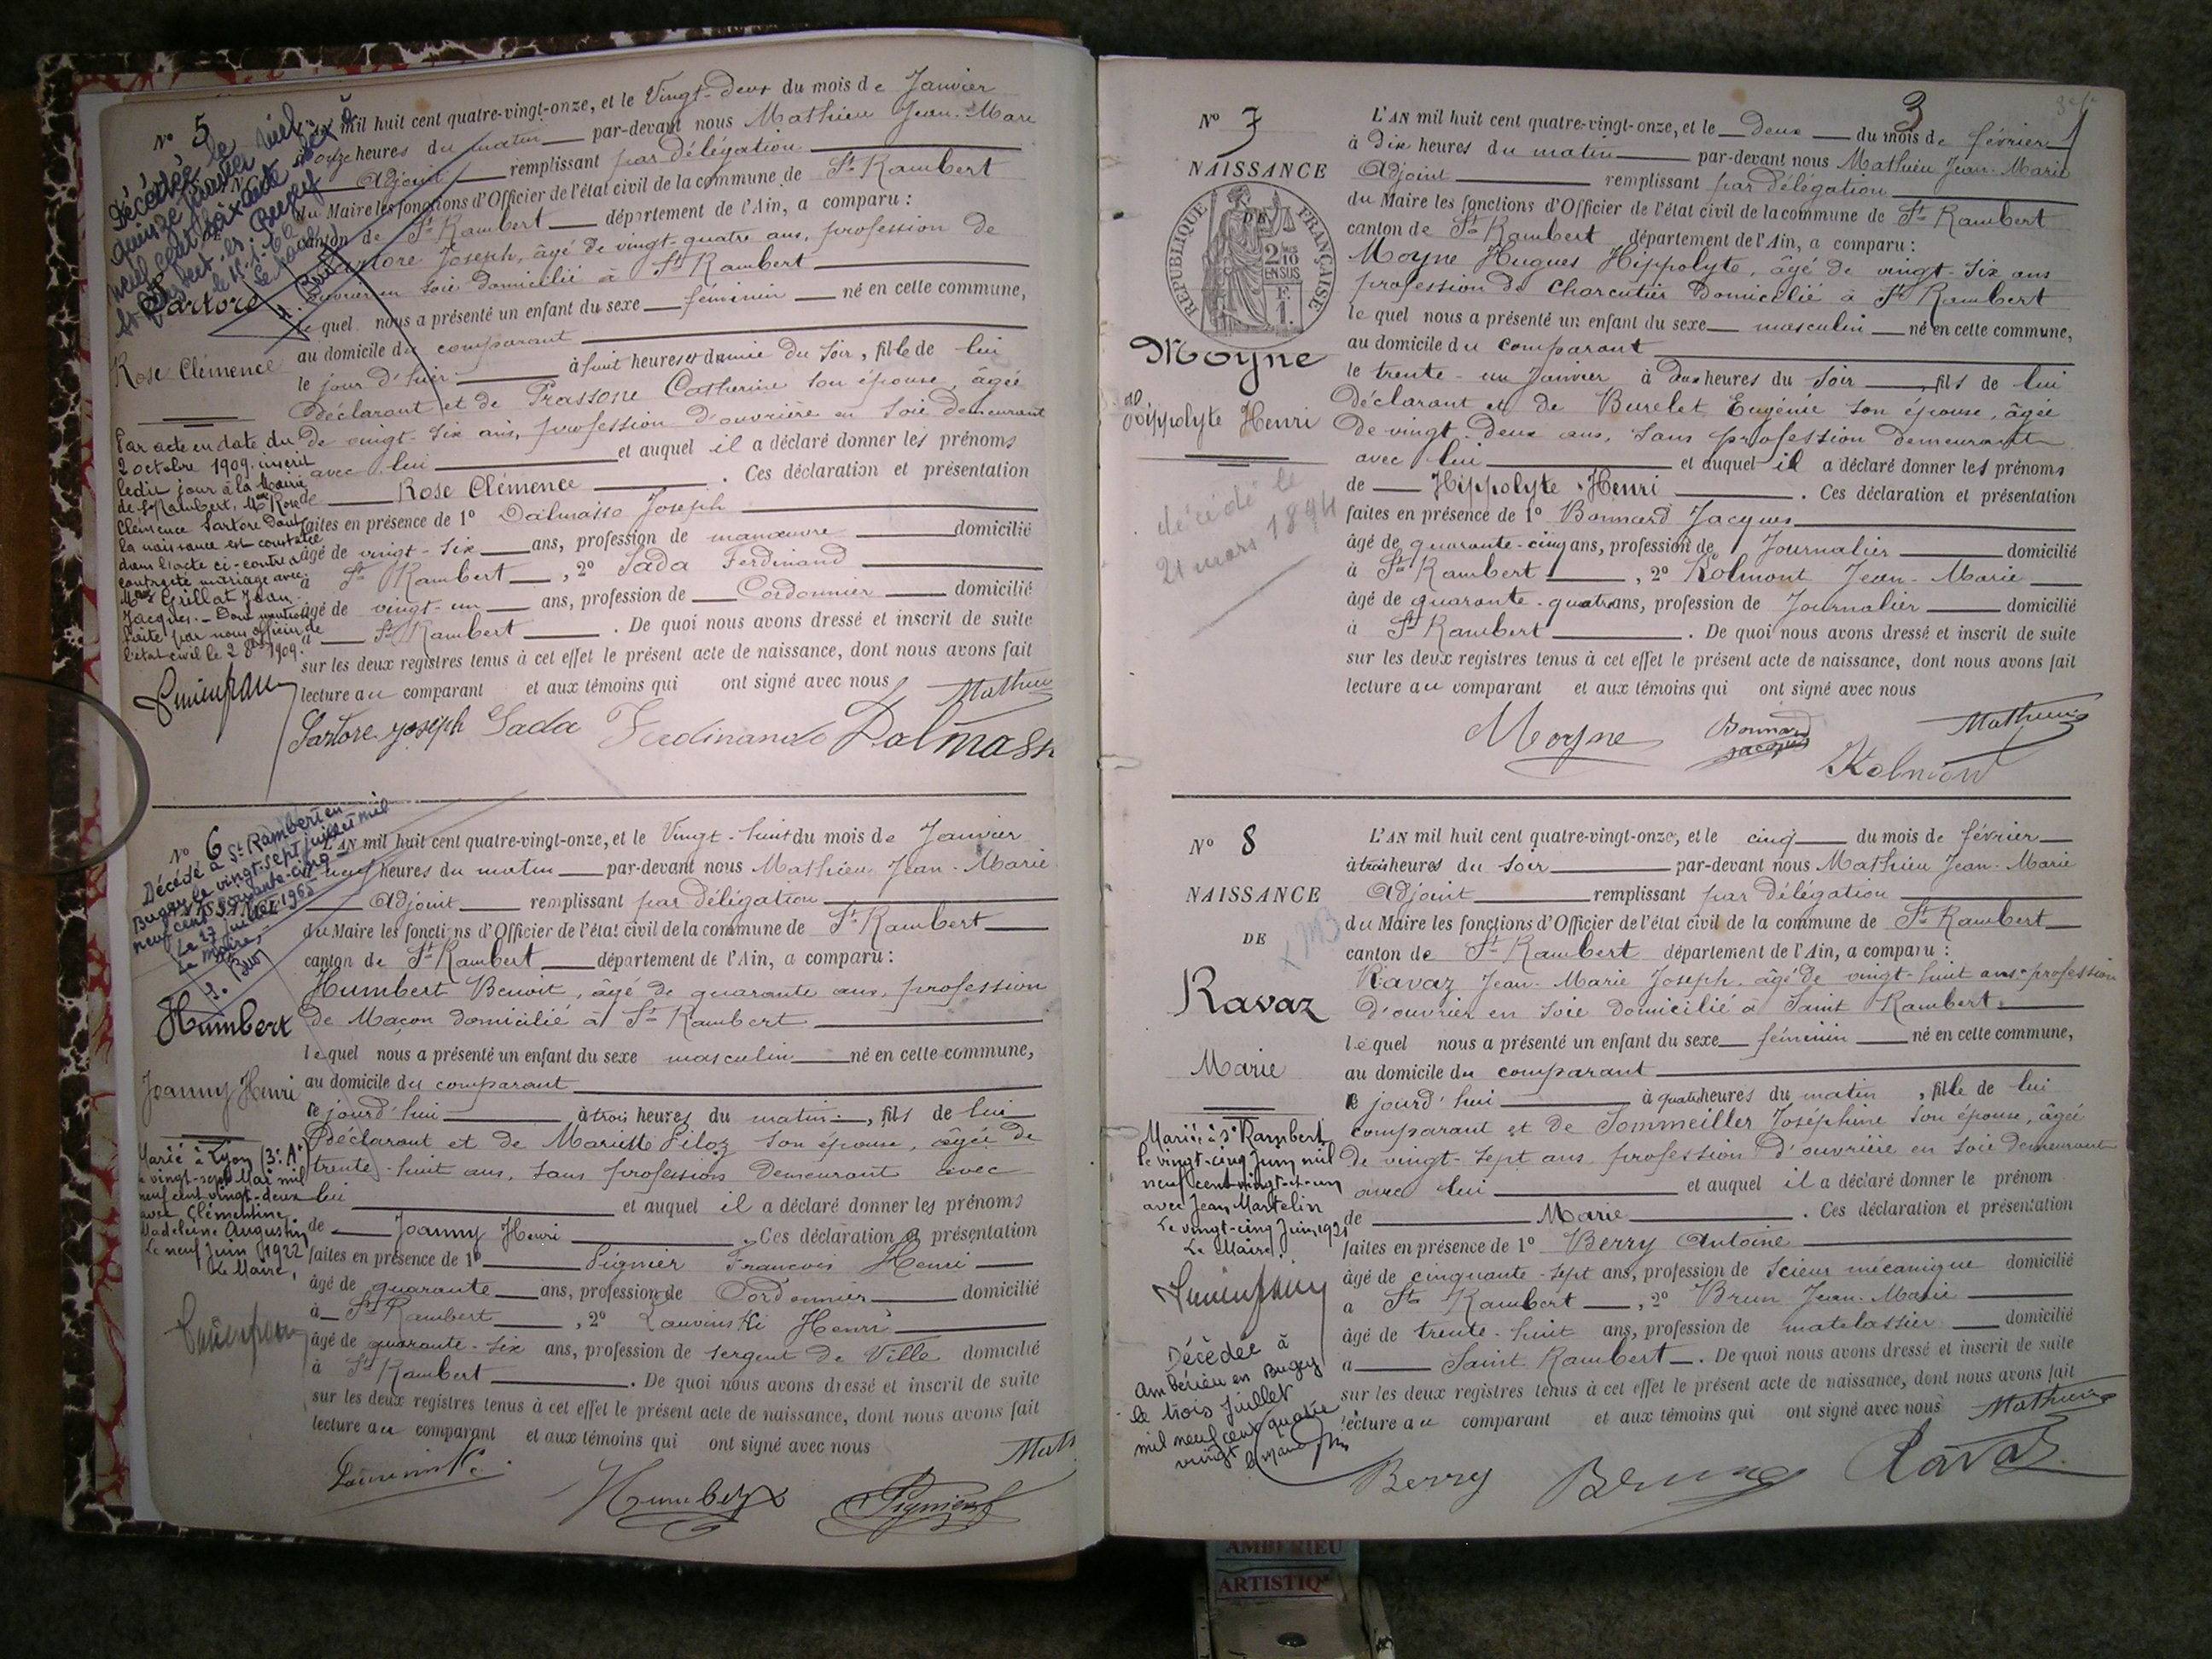 N° 5
L'AN mil huit cent quatre-vingt-onze, et le Vingt-deux du mois de Janvier
à onze heures du matin par-devant nous Mathieu Jean-Marie
Adjoint remplissant par délégation
du Maire les fonctions d'Officier de l'état civil de la commune de St Rambert
canton de St Rambert département de l'Ain, a comparu :
Sartore Joseph, âgé de vingt-quatre ans, profession de
ouvrier en soie domicilié à St Rambert
le quel nous a présenté un enfant du sexe féminin né en cette commune,
au domicile du comparant
le jour d'hier à huit heures et demie du soir, fille de lui
déclarant et de Prassone Catherine son épouse, âgée
de vingt-six ans, profession d'ouvrière en soie demeurant
avec lui et auquel il a déclaré donner les prénoms
de Rose Clémence . Ces déclaration et présentation
faites en présence de 1° Dalmasso Joseph
âgé de vingt-six ans, profession de manœuvre domicilié
à St Rambert , 2° Sada Ferdinand
âgé de vingt-un ans, profession de Cordonnier domicilié
à St Rambert . De quoi nous avons dressé et inscrit de suite
sur les deux registres tenus à cet effet le présent acte de naissance, dont nous avons fait
lecture au comparant et aux témoins qui ont signé avec nous
Mathieu
Sartore Joseph Sada Ferdinando Dalmass
Décédée
quinze janvier mil
neuf cent soixante
Sartore
Rose Clémence
Par acte en date du
2 octobre 1909 inscrit
ledit jour à la Mairie
de St Rambert, Melle Rose
Clémence Sartore dont
la naissance est constatée
dans l'acte ci-contre a
contracté mariage avec
Mr Grillat Jean
Jacques. - Dont mention
faite par nous officier de
l'état civil le 2 8bre 1909.
N° 6
Décédé à St Rambert en
Bugey le vingt-sept juillet mil
neuf cent soixante-cinq
Le 27 juillet 1965
Le Maire,
Humbert
Joanny Henri
Marié à Lyon (3e At)
le vingt-sept Mai mil
neuf cent vingt-deux
avec Clémentine
Madeleine Augustin
Le neuf Juin 1922
Le Maire,
L'AN mil huit cent quatre-vingt-onze, et le Vingt-huit du mois de Janvier
à neuf heures du matin par-devant nous Mathieu Jean-Marie
Adjoint remplissant par délégation
du Maire les foncti ns d'Officier de l'état civil de la commune de St Rambert
canton de St Rambert département de l'Ain, a comparu :
Humbert Benoit, âgé de quarante ans, profession
de Maçon domicilié à St Rambert
le quel nous a présenté un enfant du sexe masculin né en cette commune,
au domicile du comparant
ce jourd'hui à trois heures du matin , fils de lui
déclarant et de Mariette Piloz son épouse, âgée de
trente-huit ans, sans profession demeurant avec
lui et auquel il a déclaré donner les prénoms
de Joanny Henri . Ces déclaration et présentation
faites en présence de 1° Pignier François Henri
âgé de quarante ans, profession de Cordonnier domicilié
à St Rambert , 2° Lauvinski Henri
âgé de quarante-six ans, profession de sergent de Ville domicilié
à St Rambert . De quoi nous avons dressé et inscrit de suite
sur les deux registres tenus à cet effet le présent acte de naissance, dont nous avons fait
lecture au comparant et aux témoins qui ont signé avec nous
Humbert Pignier
3
N° 7
NAISSANCE
DE
RÉPUBLIQUE FRANÇAISE
2/10 EN SUS
F. 1.
Moyne
Hippolyte Henri
décédé le
21 mars 1894
L'AN mil huit cent quatre-vingt-onze, et le deux du mois de février
à dix heures du matin par-devant nous Mathieu Jean-Marie
Adjoint remplissant par délégation
du Maire les fonctions d'Officier de l'état civil de la commune de St Rambert
canton de St Rambert département de l'Ain, a comparu :
Moyne Hugues Hippolyte, âgé de vingt-six ans
profession de Charcutier domicilié à St Rambert
le quel nous a présenté un enfant du sexe masculin né en cette commune,
au domicile du comparant
le trente-un Janvier à deux heures du soir , fils de lui
déclarant et de Burelet Eugénie son épouse, âgée
de vingt-deux ans, sans profession demeurant
avec lui et auquel il a déclaré donner les prénoms
de Hippolyte Henri . Ces déclaration et présentation
faites en présence de 1° Bonnard Jacques
âgé de quarante-cinq ans, profession de Journalier domicilié
à St Rambert , 2° Kolmont Jean-Marie
âgé de quarante-quatre ans, profession de Journalier domicilié
à St Rambert . De quoi nous avons dressé et inscrit de suite
sur les deux registres tenus à cet effet le présent acte de naissance, dont nous avons fait
lecture au comparant et aux témoins qui ont signé avec nous
Moyne Bonnard Jacques Mathieu
Kolmont
N° 8
NAISSANCE
DE
Ravaz
Marie
Mariée à St Rambert
le vingt-cinq Juin mil
neuf cent vingt-et-un
avec Jean Martelin
Le vingt-cinq Juin 1921
Le Maire,
Décédée à
Ambérieu en Bugey
le trois Juillet
mil neuf cent quatre
vingt
L'AN mil huit cent quatre-vingt-onze, et le cinq du mois de février
à trois heures du soir par-devant nous Mathieu Jean-Marie
Adjoint remplissant par délégation
du Maire les fonctions d'Officier de l'état civil de la commune de St Rambert
canton de St Rambert département de l'Ain, a comparu :
Ravaz Jean-Marie Joseph, âgé de vingt-huit ans profession
d'ouvrier en soie domicilié à Saint Rambert
le quel nous a présenté un enfant du sexe féminin né en cette commune,
au domicile du comparant
ce jourd'hui à quatre heures du matin , fille de lui
comparant et de Sommeiller Joséphine son épouse, âgée
de vingt-sept ans profession d'ouvrière en soie demeurant
avec lui et auquel il a déclaré donner le prénom
de Marie . Ces déclaration et présentation
faites en présence de 1° Berry Antoine
âgé de cinquante-sept ans, profession de scieur mécanique domicilié
a St Rambert , 2° Brun Jean-Marie
âgé de trente-huit ans, profession de matelassier domicilié
a Saint Rambert . De quoi nous avons dressé et inscrit de suite
sur les deux registres tenus à cet effet le présent acte de naissance, dont nous avons fait
lecture au comparant et aux témoins qui ont signé avec nous Mathieu
Berry Brun Ravaz
AMBERIEU
ARTISTIQ